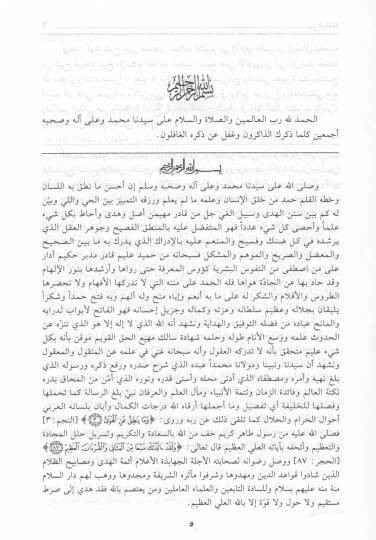 بسم الله الرحمن الرحيم
الحمد لله رب العالمين والصلاة والسلام على سيدنا محمد وعلى آله وصحبه
أجمعين كلما ذكرك الذاكرون وغفل عن ذكره الغافلون.
بسم الله الرحمن الرحيم
وصلى الله على سيدنا محمد وعلى آله وصحبه وسلم إن أحسن ما نطق به اللسان
وخطه القلم حمد من خلق الإنسان وعلمه ما لم يعلم ورزقه التمييز بين الحي واللي وبيّن
له كم بين سنن الهدى وسبيل الغي جل من قادر مهيمن أضل وهدى وأحاط بكل شيء
علماً وأحصى كل شيء عدداً فهو المتفضل عليه بالمنطق الفصيح وجوهر العقل الذي
يرشده في كل ضنك وفسيح والمنعم عليه بالإدراك الذي يدرك به ما بين الصحيح
والمعضل والصريح والموهم والمشكل فسبحانه من حميد عليم قادر مدبر حكيم أدار
على من اصطفى من النفوس البشرية كؤوس المعرفة حتى رواها وأرشدها بنور الإلهام
وقد حاد بها عن الجادّة هواها فله الحمد على مننه التي لا تدركها الأفهام ولا تحصرها
الطروس والأقلام والشكر له على ما به أنعم وإياه منح وله ألهم وبه فتح حمداً وشكراً
يليقان بجلاله وعظيم سلطانه وعزته وكماله وجزيل إحسانه فهو الفاتح لأبواب لدرايه
والمانح عباده من فضله التوفيق والهداية ونشهد أنه الله الذي لا إله إلا هو الذي تنزّه عن
الحدوث علمه ووسع الأنام طوله وحلمه شهادة سالك مهيع الحق القويم موقن بأنه بكل
شيء عليم متحقق بأنه لا تدركه العقول وأنه سبحانه غني في علمه عن المنقول والمعقول
ونشهد أن سيدنا ونبينا ومولانا محمداً عبده الذي شرح صدره ورفع ذكره ورسوله الذي
بلغ نهيه وأمره ومصطفاه الذي أدنى محله وأسنى قدره ونوره الذي أمّن من المحاق بدره
نكتة العالم وفائدة الزمان وتتمة الأنبياء ومآل العلم والعرفان نبيّ بلغ الرسالة كما تحملها
وفصلها للخليقة أي تفصيل وما أجملها أرقاه الله درجات الكمال وأبان بلسانه العربي
أحوال الحرام والحلال كما تلقى ذلك عن ربه وروى: ﴿وَمَا يَنطِقُ عَنِ الْهَوَىٰ﴾ [النجم: ٣]
فصلى الله عليه من رسول طاهر كريم خف من الله بالسعادة والتكريم وتسربل حلل المجادة
والتعظيم وأتحفه بآياته العلي العظيم قال تعالى: ﴿وَلَقَدْ آتَيْنَاكَ سَبْعًا مِّنَ الْمَثَانِي وَالْقُرْآنَ الْعَظِيمَ﴾
[الحجر: ٨٧] ووصل رضوانه لصحابته الأجلة الجهابذة الأعلام أئمة الهدى ومصابيح الظلام
الذين شادوا قواعد الدين ومهدوها وشرفوا مآثره الشريفة ومجدوها ووهب لهم دار السلام
منة منه عليهم بسلام وللسادة التابعين والعلماء العاملين ومن يعتصم بالله فقد هدي إلى صرط
مستقيم ولا حول ولا قوة إلا بالله العلي العظيم.
٥